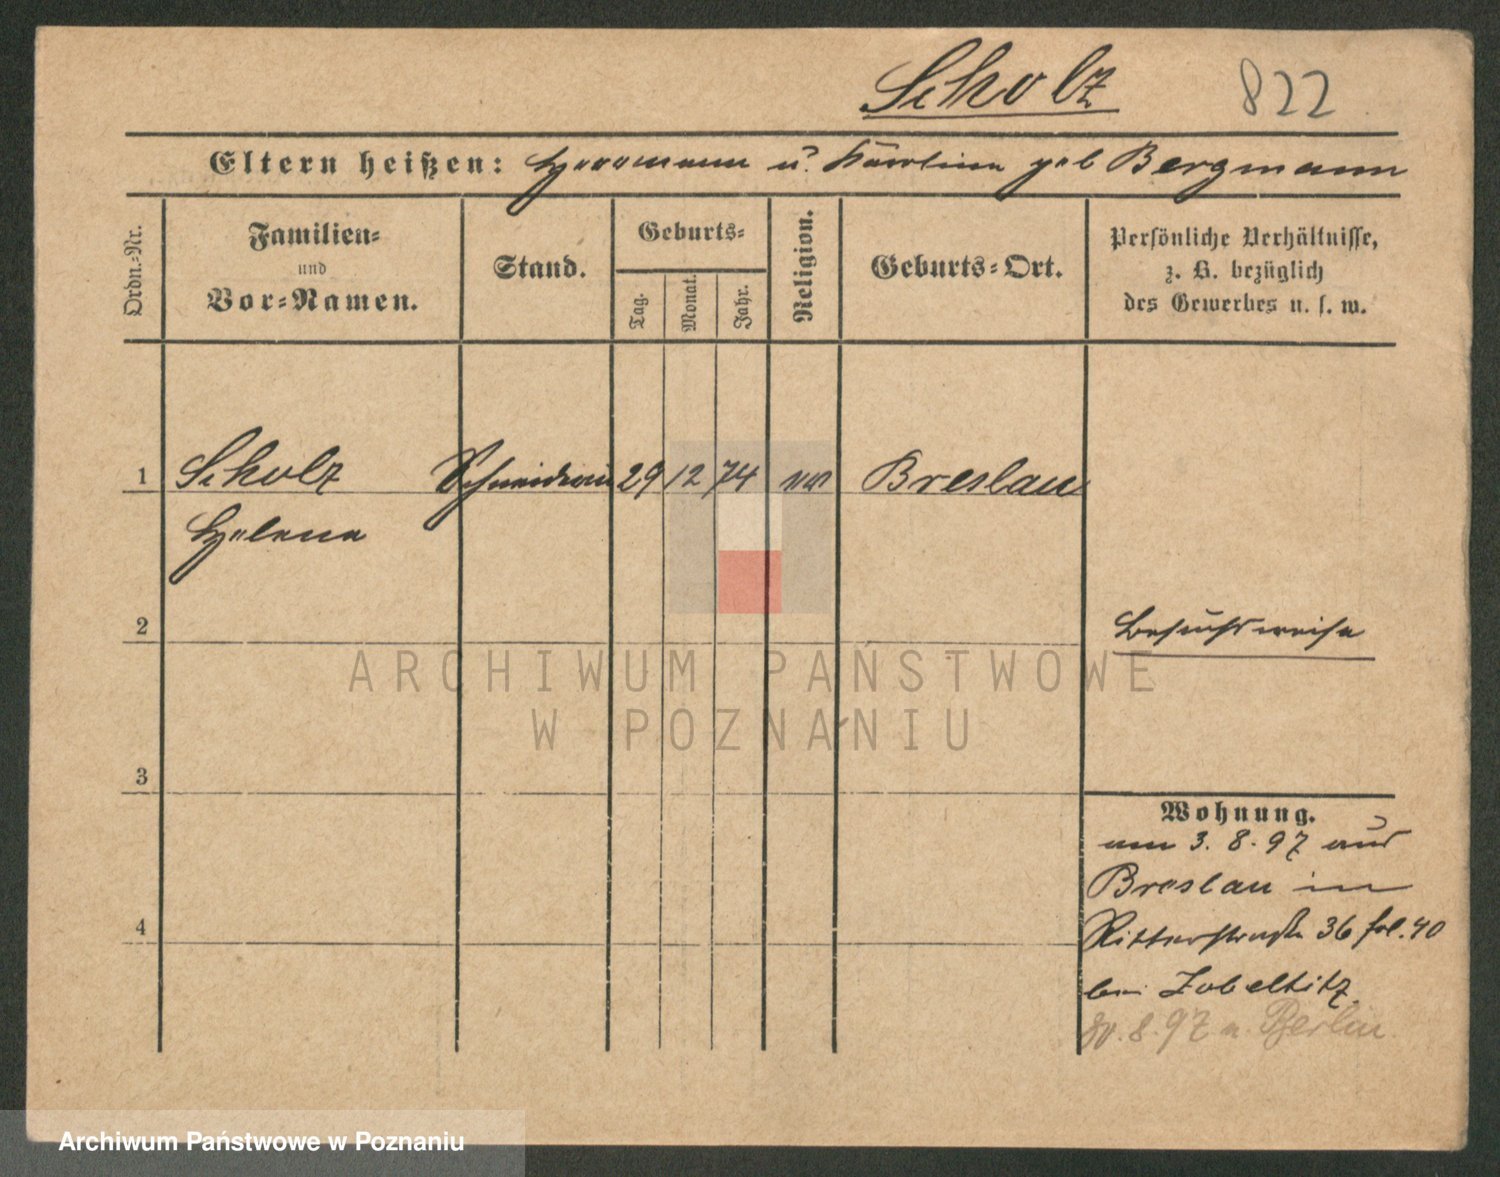 Scholz 822
Eltern heißen: Herrmann u. Karolina geb Bergmann
Ordn.-Nr.
Familien-
und
Vor-Namen.
Stand.
Geburts-
Tag.
Monat.
Jahr.
Religion.
Geburts-Ort.
Persönliche Verhältnisse,
z. B. bezüglich
des Gewerbes u. s. w.
1 Scholz Schneiderin 29 12 74 Breslau
Helena
2
Besuchsweise
ARCHIWUM PAŃSTWOWE
W POZNANIU
3
Wohnung.
am 3. 8. 97 aus
Breslau in
4
Ritterstraße 36 fol. 40
bei Zobeltitz
8. 97 n. Berlin.
Archiwum Państwowe w Poznaniu